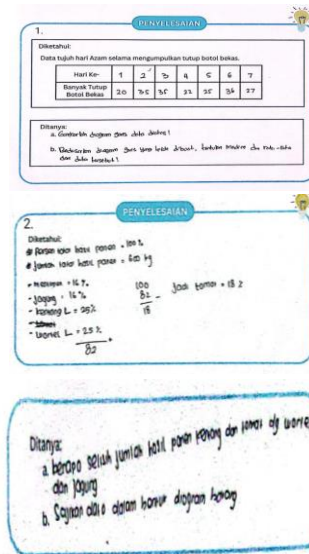 PENYELESAIAN
1.
Diketahui:
Data tujuh hari Azam selama mengumpulkan tutup botol bekas.
Hari Ke- 1 2 3 4 5 6 7
Banyak Tutup Botol Bekas 20 35 35 35 36 27
Ditanya:
a. Gambarlah diagram garis data !
b. Berdasarkan diagram garis yang telah dibuat, tentukan median dan rata-rata
dari data tersebut!
PENYELESAIAN
2.
Diketahui:
hasil panen = 100 %
hasil panen = 600 kg
= 16 %
- jagung = 16 %
- kentang = 25%
- wortel = 25%
82
100
82 -
18
Jadi tomat = 18 %
Ditanya:
a. berapa selisih jumlah hasil panen kentang dan tomat dg wortel
dan jagung
b. Sajikan data dalam diagram batang